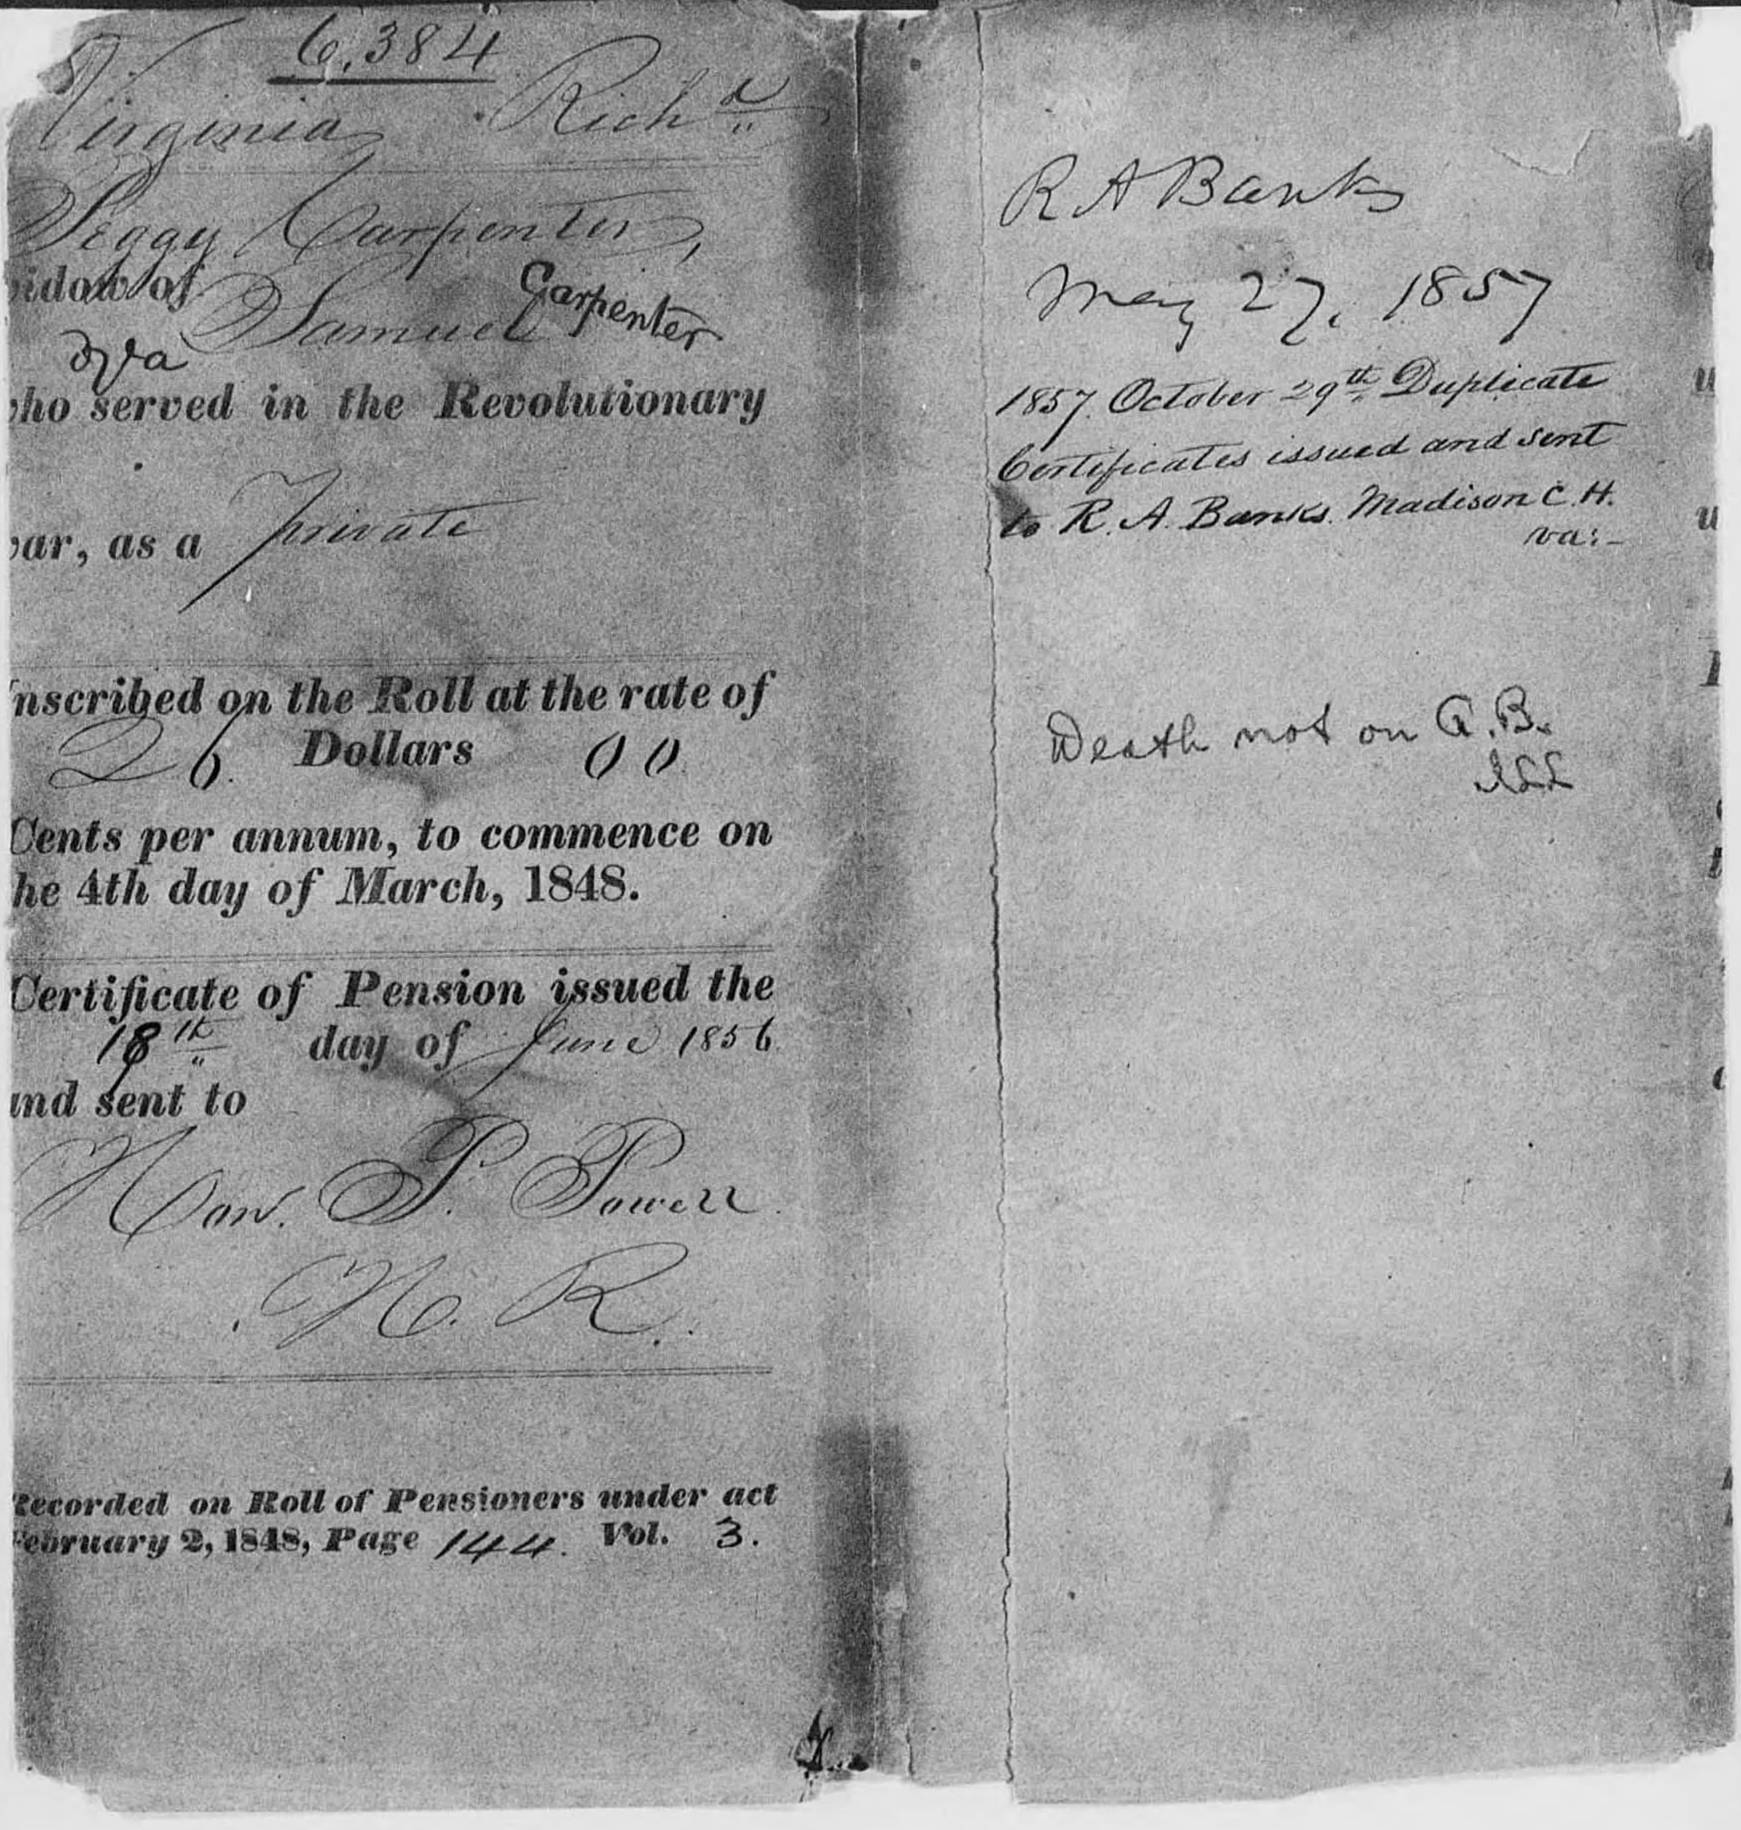 6,384
Virginia Rich d
Peggy Carpenter,
idow of
Samuel Carpenter
Va
ho served in the Revolutionary
ar, as a private
nscribed on the Roll at the rate of
26. Dollars 00
Cents per annum, to commence on
he 4th day of March, 1848.
Certificate of Pension issued the
18th day of June 1856
nd sent to
Hon. P. Powell
H. R.
Recorded on Roll of Pensioners under act
February 2, 1848, Page 144. Vol. 3.
R A Banks
May 27, 1857
1857. October 29th Duplicate
Certificates issued and sent
to R. A. Banks. Madison C. H.
va:-
Death not on A.B.